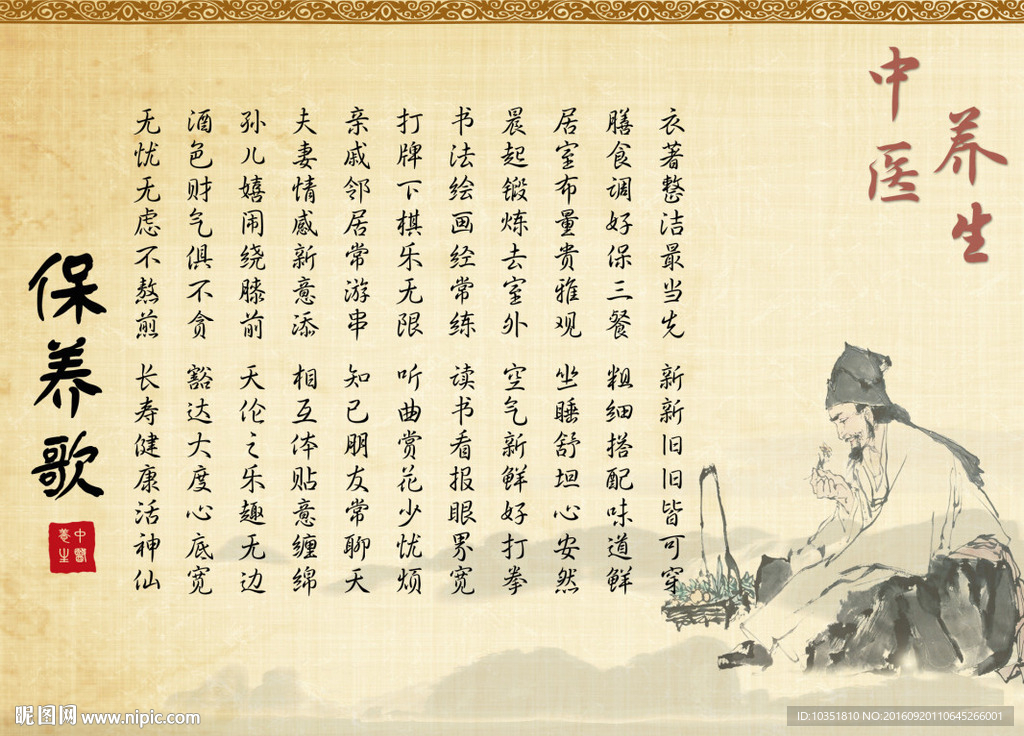 中医
养生
衣著整洁最当先 新新旧旧皆可穿
膳食调好保三餐 粗细搭配味道鲜
居室布量贵雅观 坐睡舒坦心安然
晨起锻炼去室外 空气新鲜好打拳
书法绘画经常练 读书看报眼界宽
打牌下棋乐无限 听曲赏花少忧烦
亲戚邻居常游串 知己朋友常聊天
夫妻情感新意添 相互体贴意缠绵
孙儿嬉闹绕膝前 天伦之乐趣无边
酒色财气俱不贪 豁达大度心底宽
无忧无虑不熬煎 长寿健康活神仙
保养歌
中醫
養生
昵图网 www.nipic.com
ID:10351810 NO:20160920110645266001